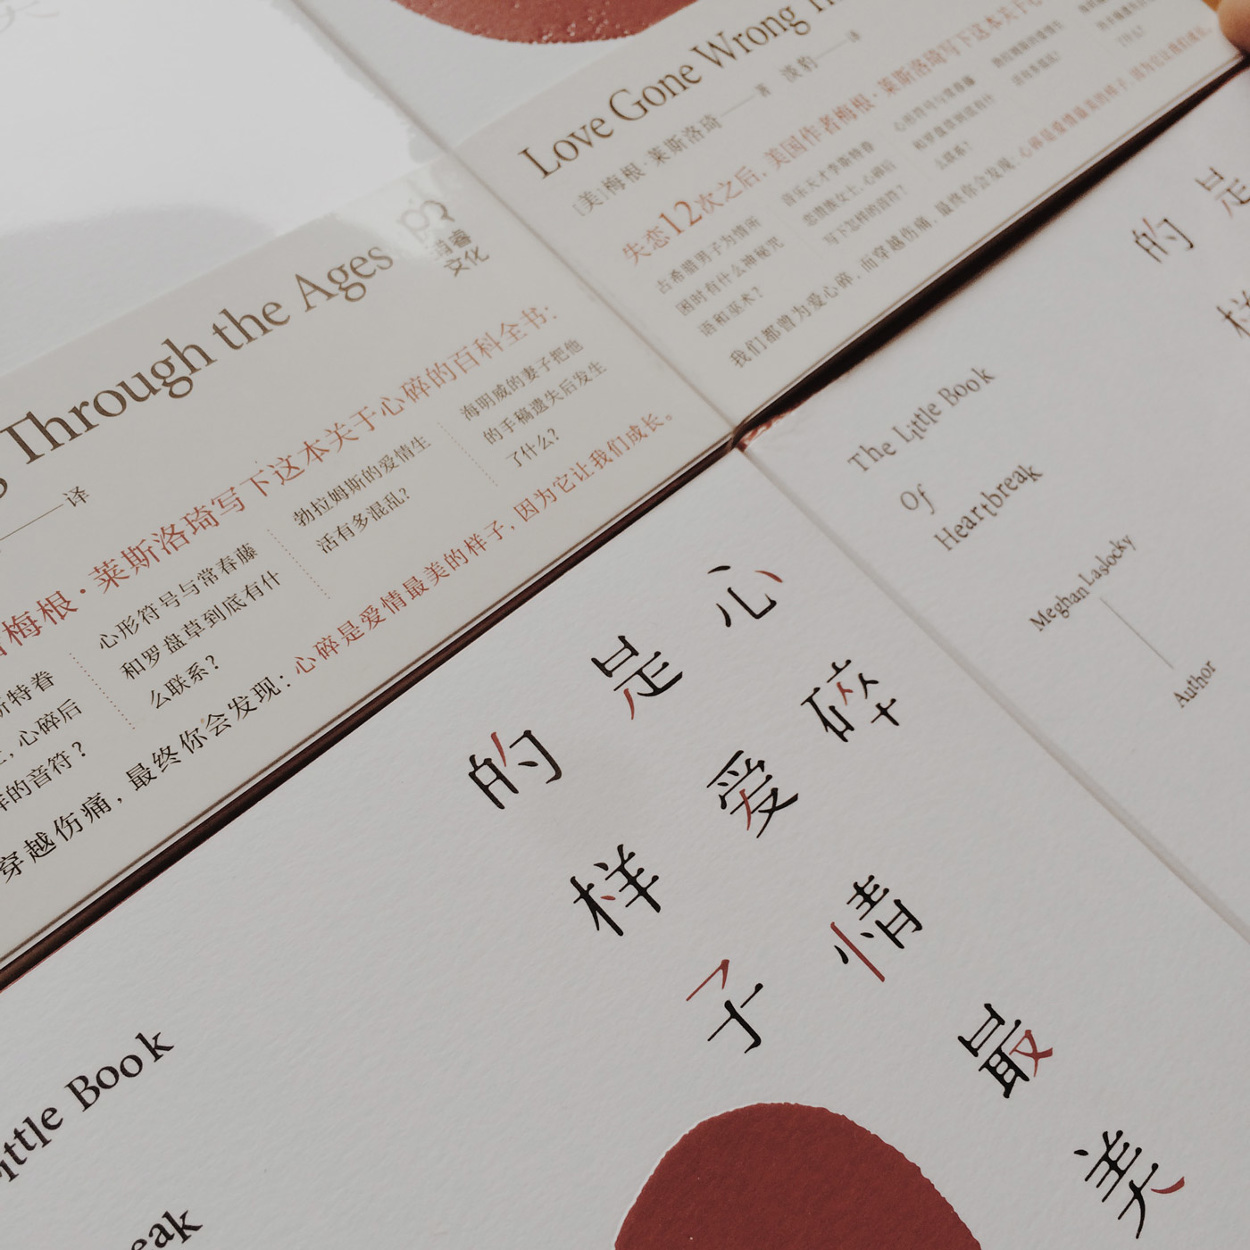 Love Gone Wrong
[美]梅根·莱斯洛琦——著 淡豹——译
失恋12次之后，美国作者梅根·莱斯洛琦写下这本关于心
古希腊男子为情所
困时有什么神秘咒
语和巫术？
音乐天才李斯特眷
恋情族女上，心碎后
写下怎样的音符？
心形符号与常春藤
和罗盘草到底有什
么联系？
我们都曾为爱心碎，而穿越伤痛，最终你会发现：心碎是爱情最美的样子，因为它让我们成长。
Through the Ages
浮睿
文化
译
梅根·莱斯洛琦写下这本关于心碎的百科全书：
斯特眷
上，心碎后
样的音符？
心形符号与常春藤
和罗盘草到底有什
么联系？
勃拉姆斯的爱情生
活有多混乱？
海明威的妻子把他
的手稿遗失后发生
了什么？
穿越伤痛，最终你会发现：心碎是爱情最美的样子，因为它让我们成长。
是
的
样
The Little Book
Of
Heartbreak
Meghan Laslocky
Author
心碎
是爱情最美
的样子
ittle Book
eak